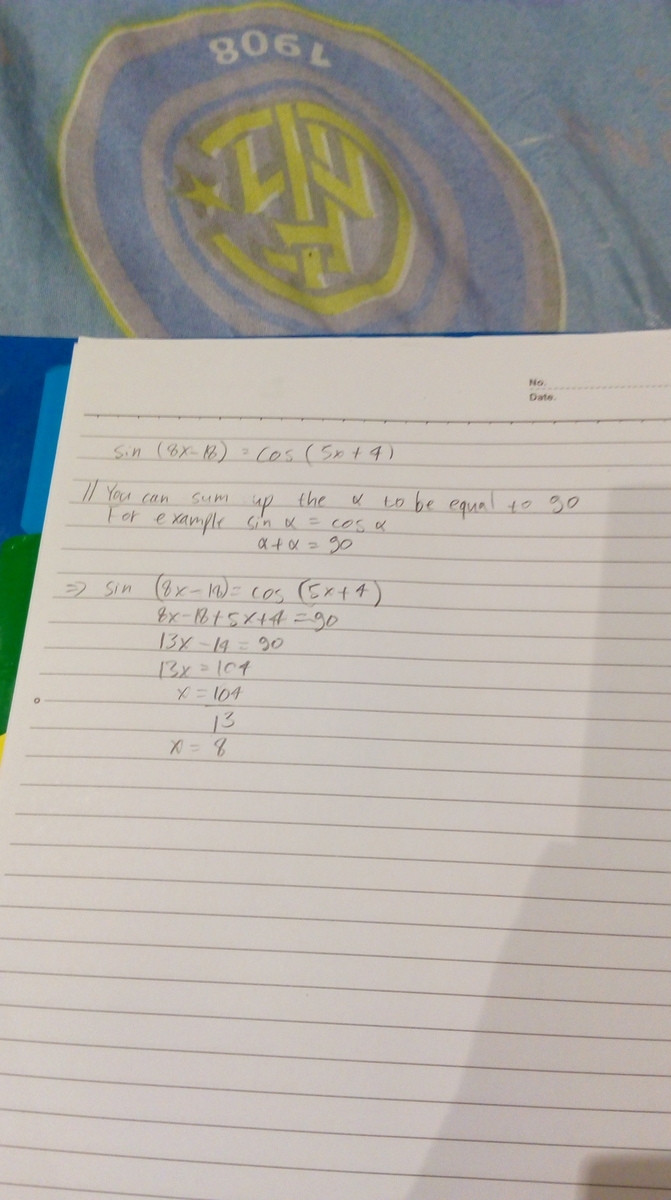 1908
No.
Date.
sin (8x-18) = cos (5x+4)
// You can sum up the α to be equal to 90
For example sin α = cos α
α+α = 90
⇒ sin (8x-18) = cos (5x+4)
8x-18+5x+4 = 90
13x -14 = 90
13x = 104
x = 104
13
x = 8